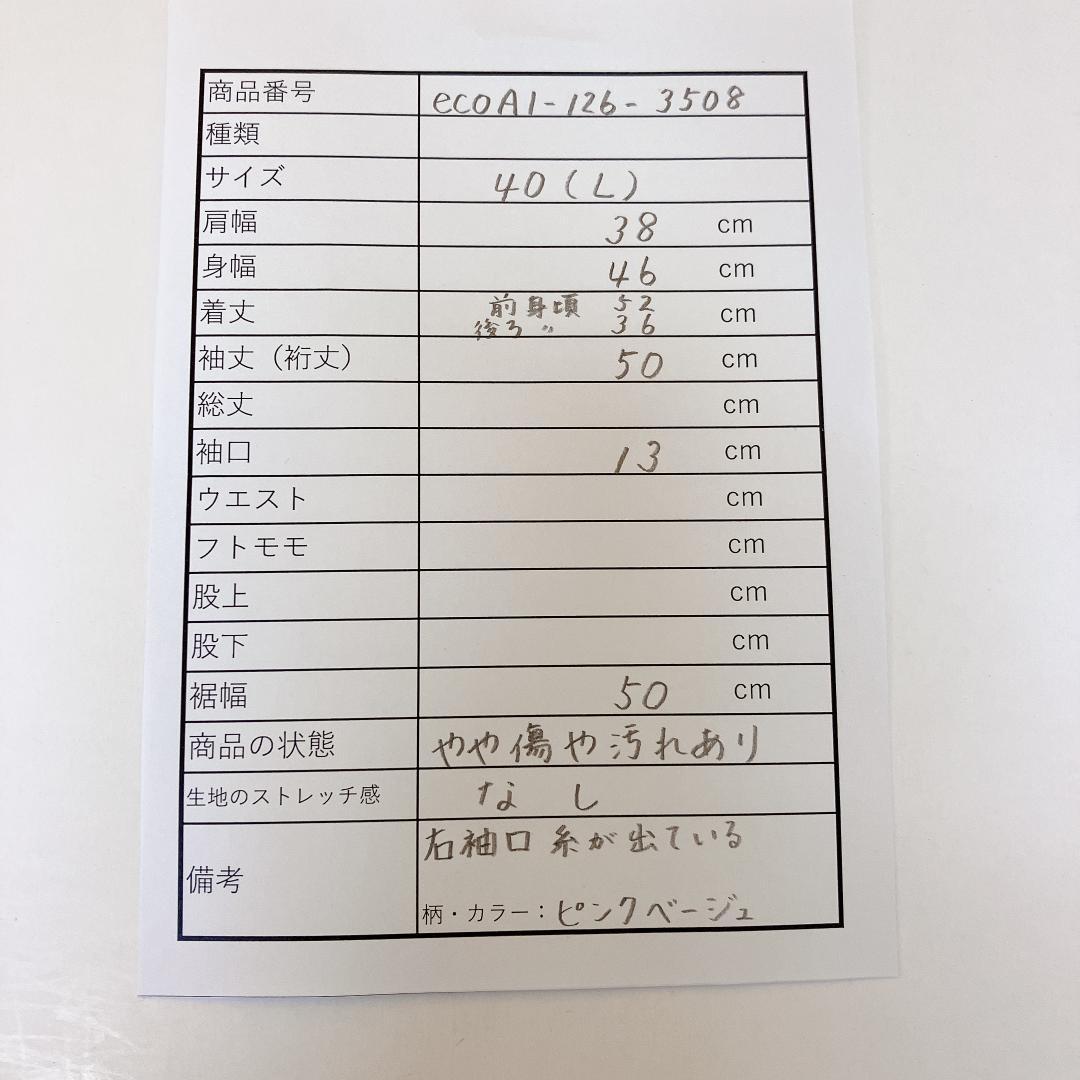 商品番号 ecoA1-126-3508
種類
サイズ 40(L)
肩幅 38 cm
身幅 46 cm
着丈 前身頃 52 cm
後ろ 〃 36
袖丈（裄丈） 50 cm
総丈 cm
袖口 13 cm
ウエスト cm
フトモモ cm
股上 cm
股下 cm
裾幅 50 cm
商品の状態 やや傷や汚れあり
生地のストレッチ感 なし
備考 右袖口 糸が出ている
柄・カラー：ピンクベージュ